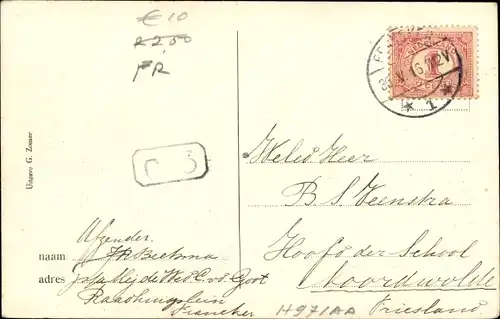 € 10
R 2,50
FR
Uitgave G. Zomer
C 3
Weled. Heer
B. S. Veenstra
Hoofd der School
Noordwolde
Friesland
Afzender.
naam
adres p/a Mej de Wed C. v.d. Goot
Raadhuisplein
Franeker
H971AA